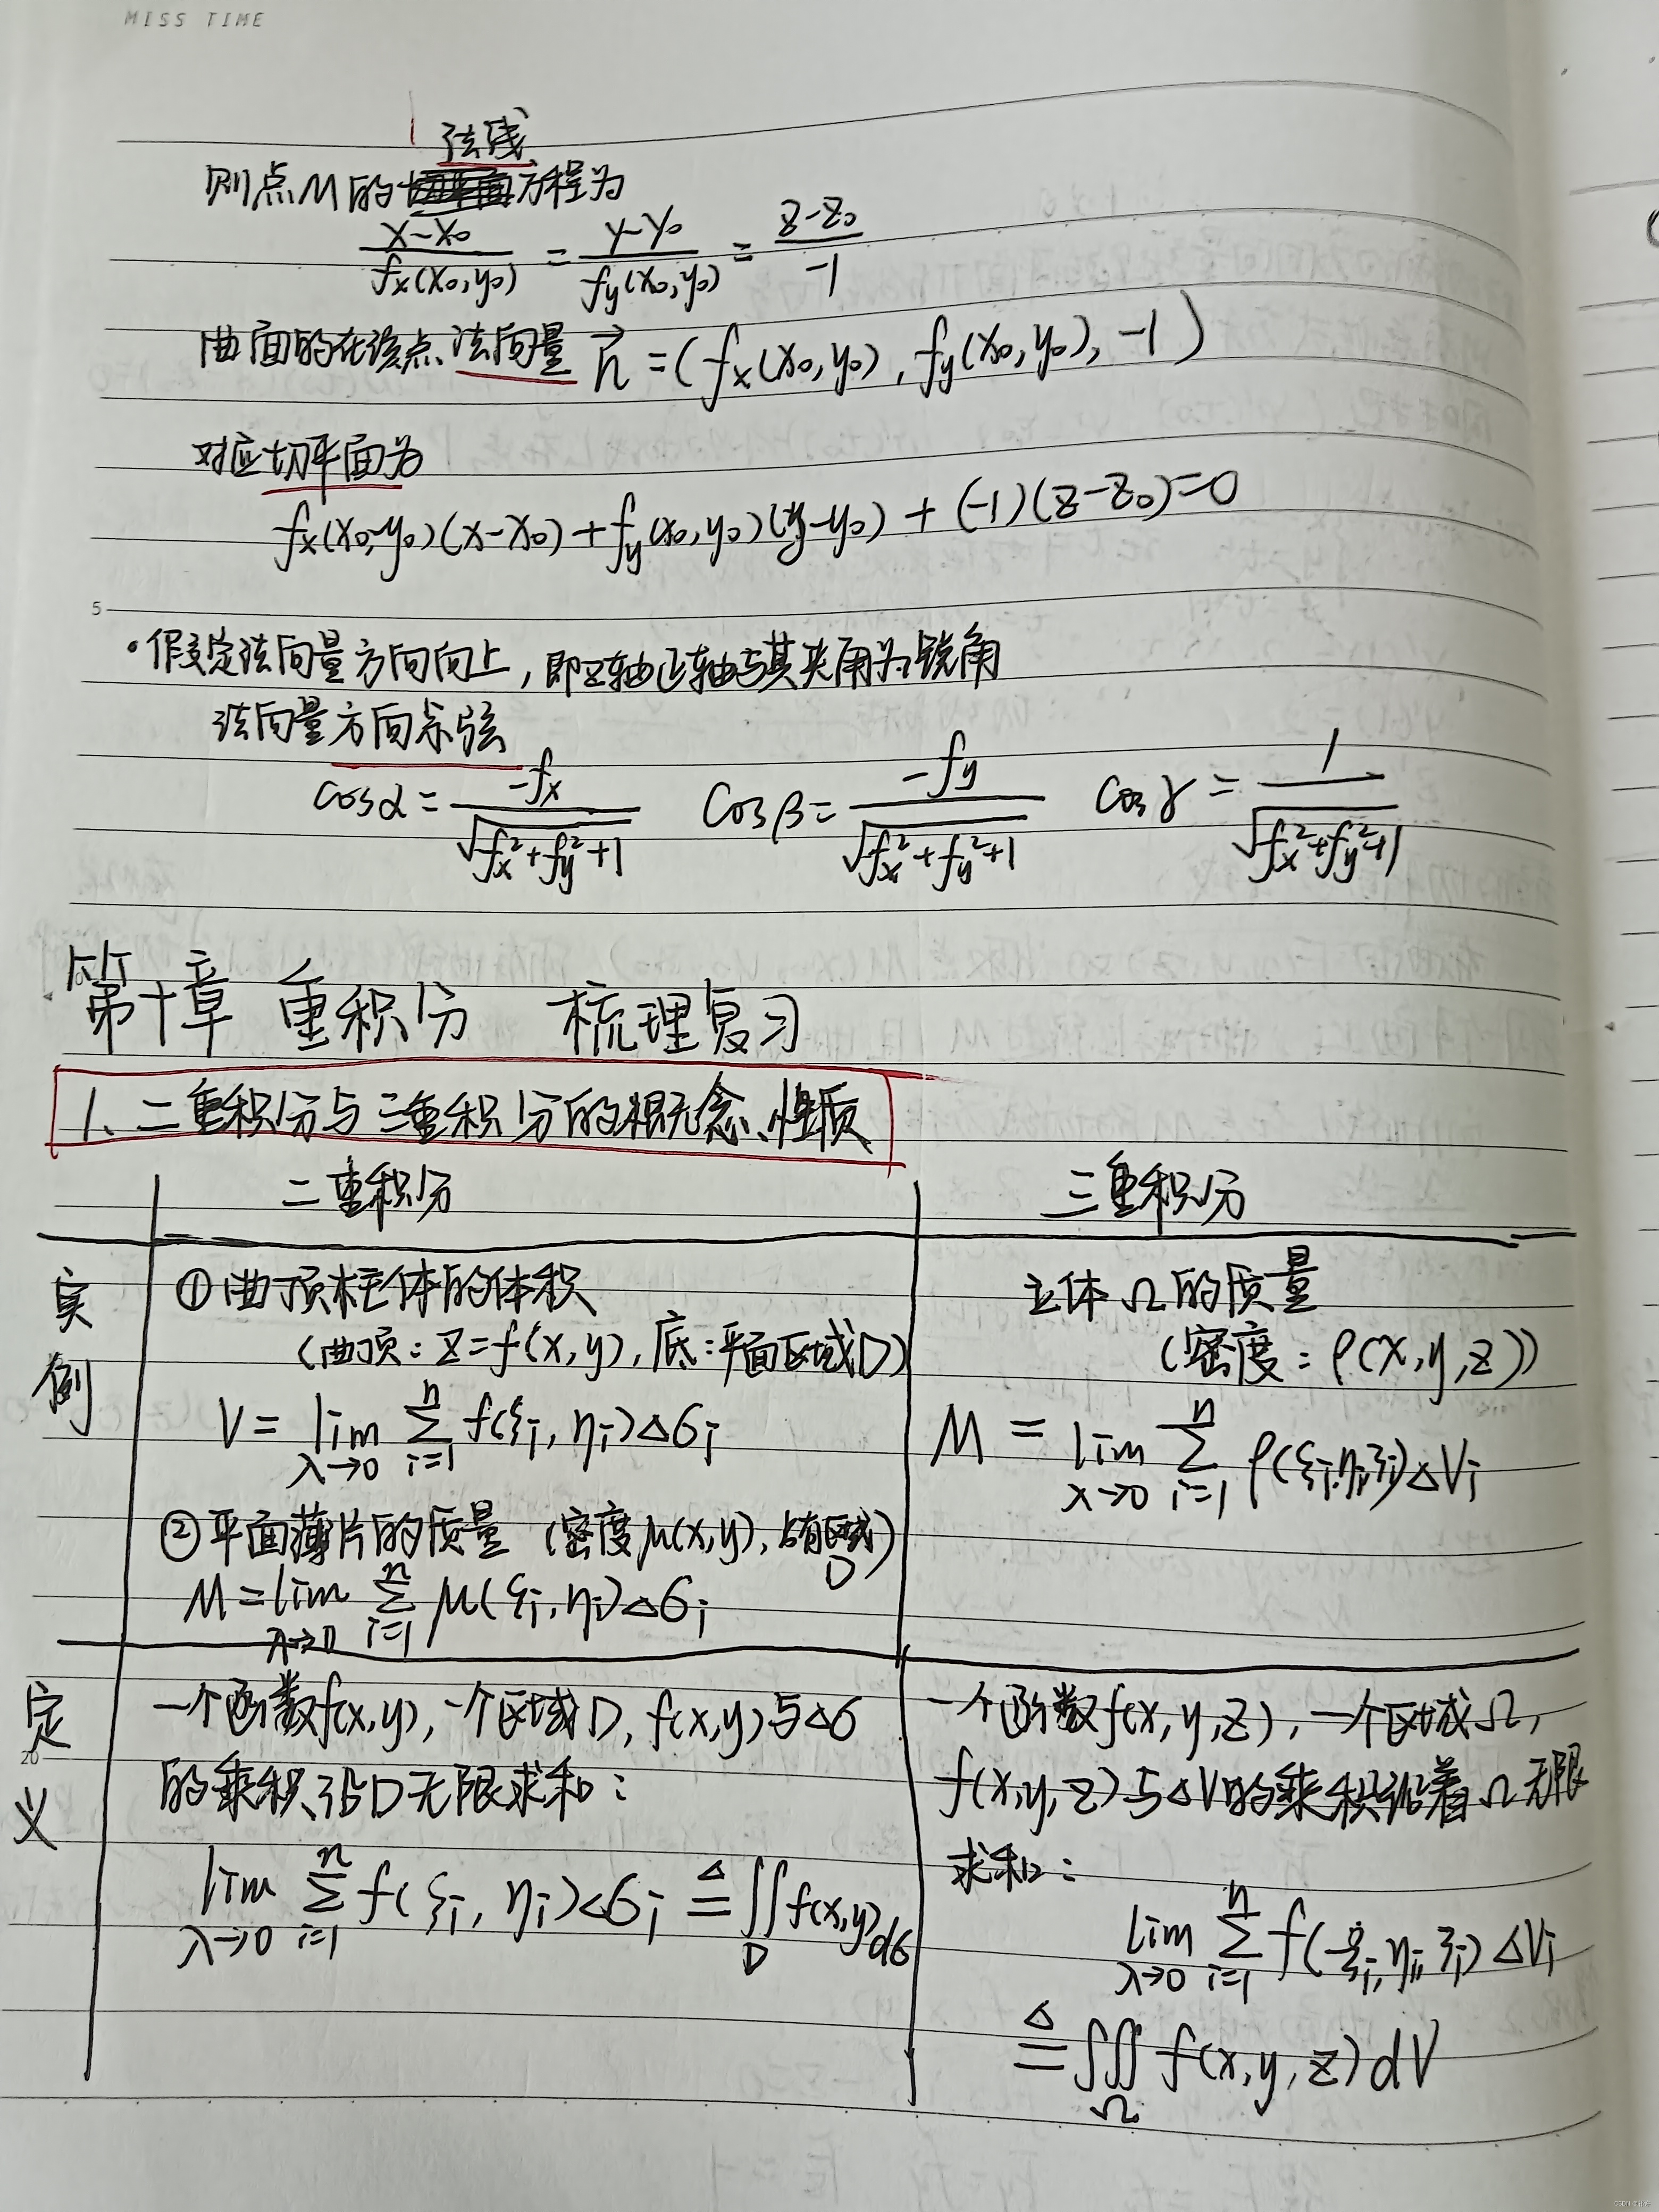 MISS TIME
法线
则点M的方程为
x-x₀/fx(x₀,y₀) = y-y₀/fy(x₀,y₀) = z-z₀/-1
曲面的在该点法向量 n⃗ = (fx(x₀,y₀), fy(x₀,y₀), -1)
对应切平面为
fx(x₀,y₀)(x-x₀)+fy(x₀,y₀)(y-y₀)+(-1)(z-z₀)=0
5
·假定法向量方向向上，即z轴正轴与其夹角为锐角
法向量方向余弦
cosα = -fx/√(fx²+fy²+1) cosβ = -fy/√(fx²+fy²+1) cosγ = 1/√(fx²+fy²+1)
第十章 重积分 梳理复习
1、二重积分与三重积分的概念、性质
二重积分
三重积分
实例
①曲顶柱体的体积
(曲顶：z=f(x,y), 底：平面区域D)
V = lim λ→0 Σ i=1 n f(ξi, ηi)Δσi
②平面薄片的质量 (密度μ(x,y), 占有区域D)
M = lim λ→0 Σ i=1 n μ(ξi, ηi)Δσi
立体Ω的质量
(密度：ρ(x,y,z))
M = lim λ→0 Σ i=1 n ρ(ξi,ηi,ζi)ΔVi
定义
20
一个函数f(x,y), 一个区域D, f(x,y)与Δσ
的乘积沿D无限求和：
lim λ→0 Σ i=1 n f(ξi, ηi)Δσi ≜ ∬D f(x,y)dσ
一个函数f(x,y,z), 一个区域Ω,
f(x,y,z)与ΔV的乘积沿着Ω无限
求和：
lim λ→0 Σ i=1 n f(ξi,ηi,ζi)ΔVi
≜ ∭Ω f(x,y,z)dV